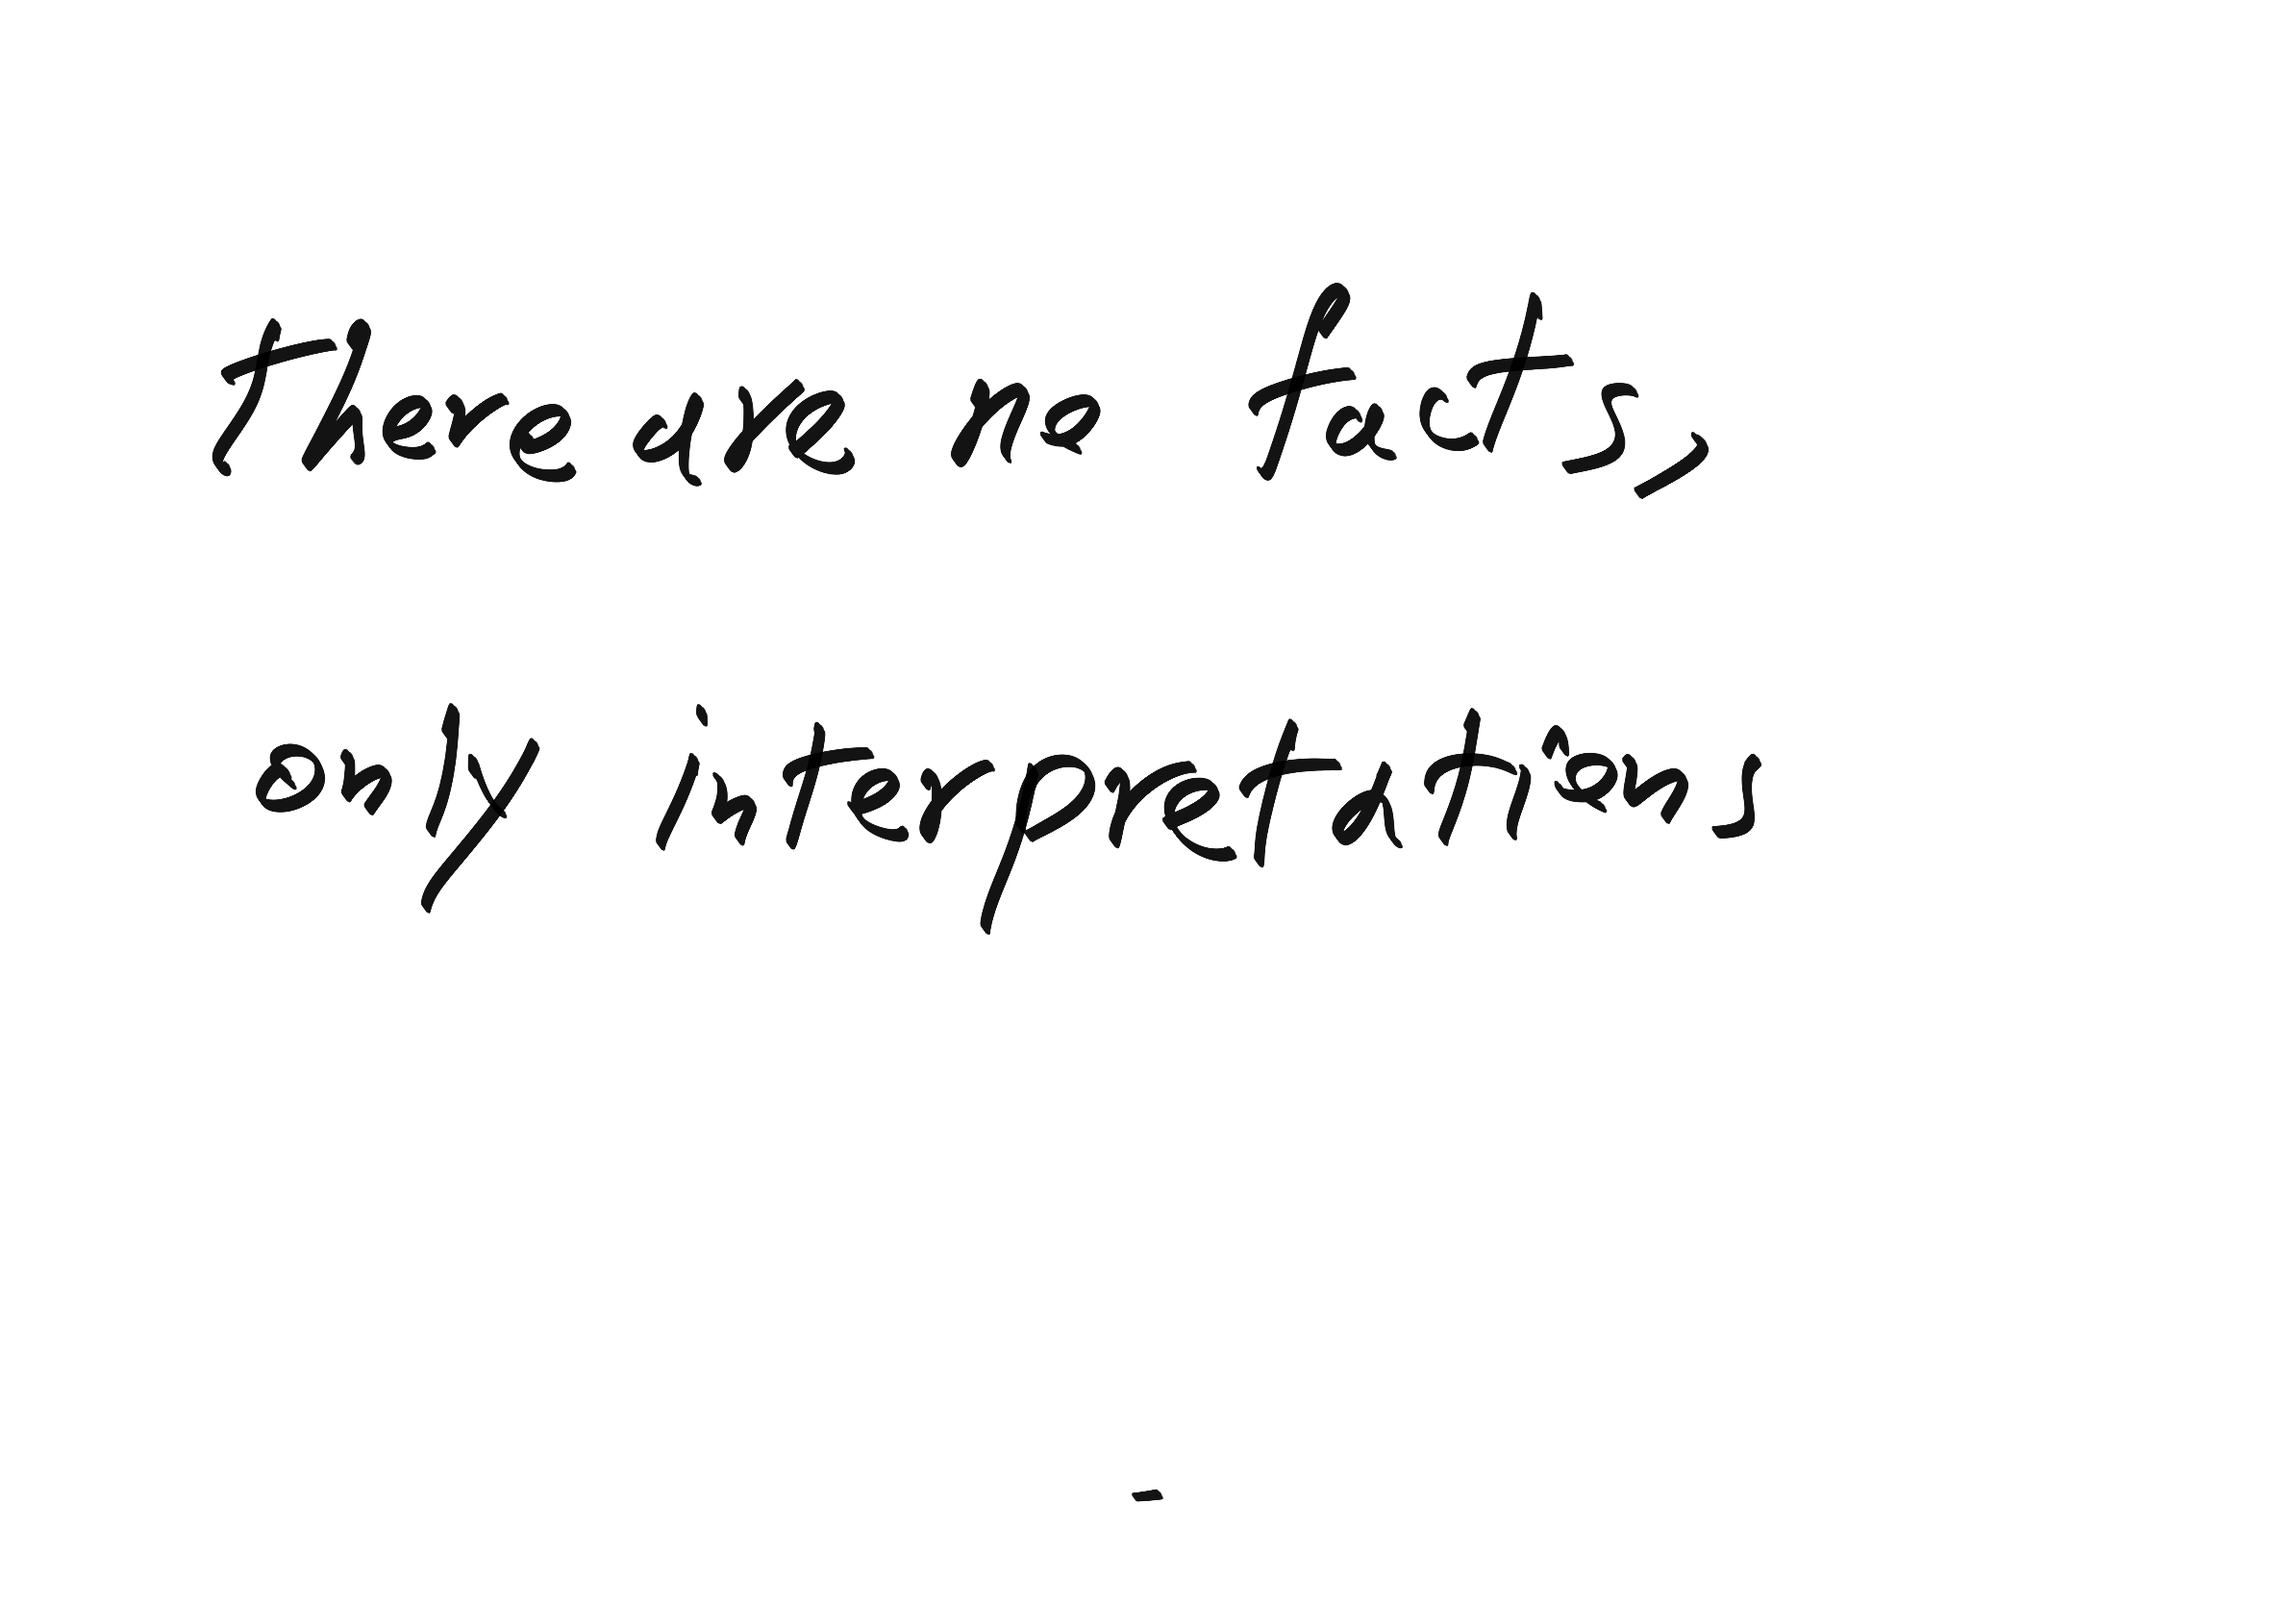 there are no facts,
only interpretations
-